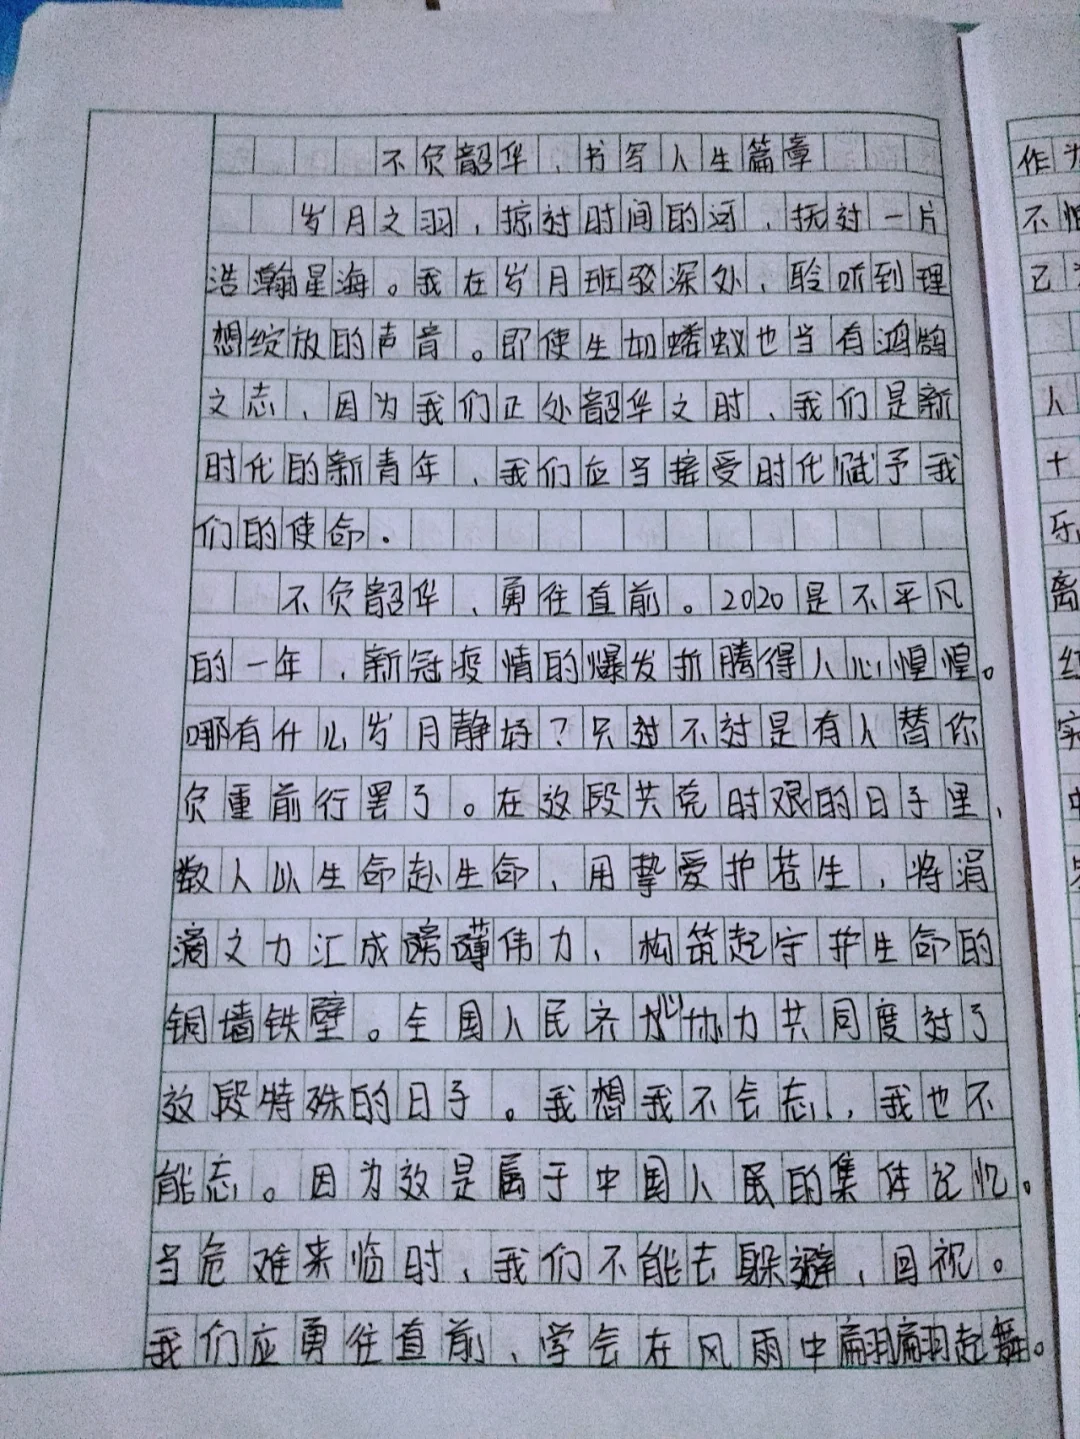 不负韶华，书写人生篇章
岁月之羽，掠过时间的河，抚过一片
浩瀚星海。我在岁月斑驳深处，聆听到理
想绽放的声音。即使生如蝼蚁也当有鸿鹄
之志，因为我们正处韶华之时，我们是新
时代的新青年，我们应当接受时代赋予我
们的使命.
不负韶华，勇往直前。2020是不平凡
的一年，新冠疫情的爆发折腾得人心惶惶。
哪有什么岁月静好？只过不过是有人替你
负重前行罢了。在这段共克时艰的日子里，
数人以生命赴生命，用挚爱护苍生，将涓
滴之力汇成磅礴伟力，构筑起守护生命的
铜墙铁壁。全国人民齐心协力共同度过了
这段特殊的日子。我想我不会忘，我也不
能忘。因为这是属于中国人民的集体记忆。
当危难来临时，我们不能去躲避，回视。
我们应勇往直前，学会在风雨中翩翩起舞。
作为
不惧
己
人
十
乐
离
红
实
中